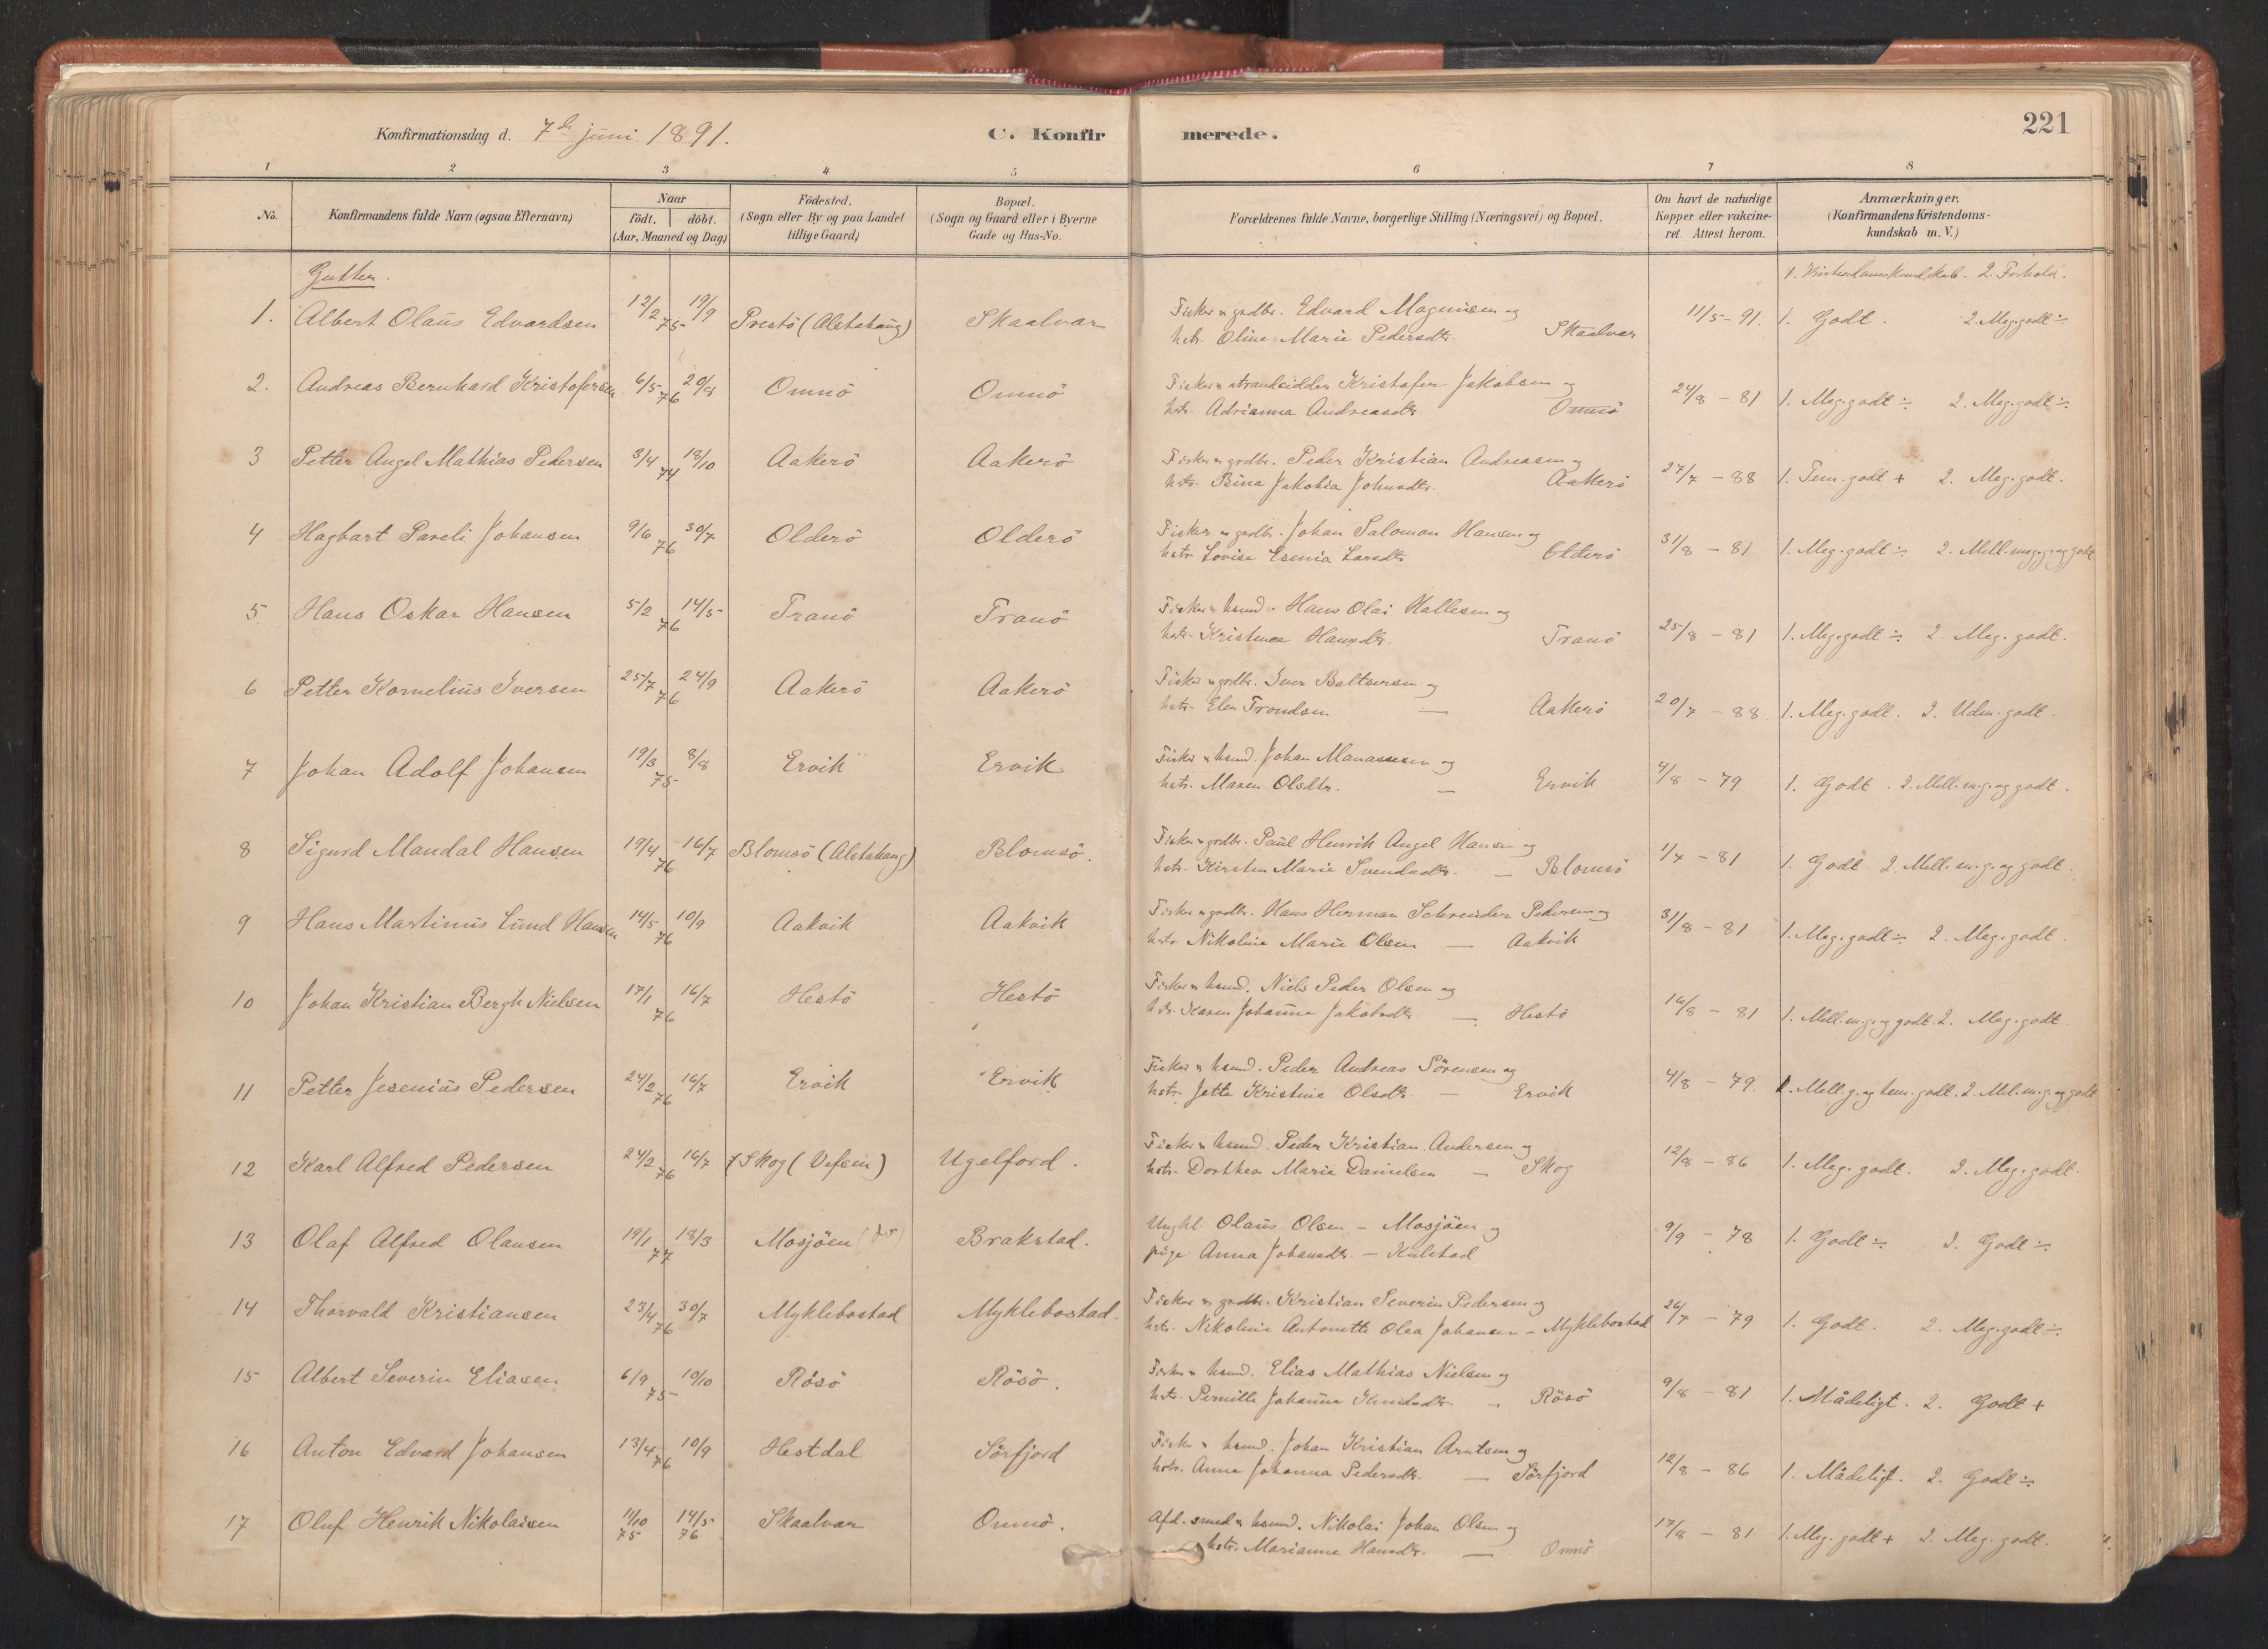 Konfirmationsdag d. 7de juni 1891. C. Konfirmerede. 221
1 2 3 4 5 6 7 8
No. Konfirmandens fulde Navn (ogsaa Efternavn) Naar födt. döbt. (Aar, Maaned og Dag) Födested. (Sogn eller By og paa Landet tillige Gaard) Bopæl. (Sogn og Gaard eller i Byerne Gade og Hus-No. Forældrenes fulde Navne, borgerlige Stilling (Næringsvei) og Bopæl. Om havt de naturlige Kopper eller vakcineret. Attest herom. Anmærkninger. (Konfirmandens Kristendomskundskab m. V.)
Gutter. 1. Kristendomskundskab. 2. Forhold.
1. Albert Olaüs Edvardsen 12/2 75 19/9 Prestö (Alstahaug) Skaalvar Fisker & gaardbr. Edvard Magnusen og 11/5-91. 1. Godt. 2. Meg.godt ÷
hstr. Oline Marie Pedersdtr. Skaalvar
2. Andreas Bernhard Kristofersen 6/5 76 20/8 Omnö Omnö Fisker & strandsidder Kristofer Jakobsen og 24/8 - 81 1. Meg.godt ÷ 2. Meg.godt ÷
hstr. Adrianna Andreasdtr. Omnö
3 Petter Angel Mathias Pedersen 3/4 74 18/10 Aakerö Aakerö Fisker & grdbr. Peder Kristian Andreasen og 27/7 - 88 1. Tem. godt + 2. Meg. godt.
hstr. Bina Jakobia Johnsdtr. Aakerö
4 Hagbart Pareli Johansen 9/6 76 30/7 Olderö Olderö Fisker & grdbr. Johan Salomon Hansen og 31/8 - 81 1. Meg.godt ÷ 2. Mell.meg.g. og godt
hstr. Lovise Esenia Larsdtr. Olderö
5. Hans Oskar Hansen 5/2 76 14/5 Tranö Tranö Fisker & husmd. Hans Olai Hallesen og 25/8 - 81 1. Meg.godt ÷ 2. Meg. godt.
hstr. Kristence Hansdtr. Tranö
6 Petter Kornelius Iversen 25/7 76 24/9 Aakerö Aakerö Fisker & grdbr. Iver Baltsersen og 20/7 - 88. 1. Meg. godt. 2. Udm. godt.
hstr. Elen Trondsen — Aakerö
7 Johan Adolf Johansen 19/3 75 8/8 Ervik Ervik Fisker & husmd. Johan Manassesen og 4/8 - 79 1. Godt. 2. Mell. m.g. og godt.
hstr. Maren Olsdtr. — Ervik
8 Sigurd Mandal Hansen 19/4 76 16/7 Blomsö (Alstahaug) Blomsö. Fisker & grdbr. Paul Henrik Angel Hansen og 1/7 - 81 1. Godt 2. Mell. m.g. og godt.
hstr. Kirsten Marie Svendsdtr. — Blomsö
9 Hans Martinus Lund Hansen 14/5 76 10/9 Aakvik Aakvik Fisker & grdbr. Hans Herman Schreuder Pedersen og 31/8 - 81 1. Meg.godt ÷ 2. Meg.godt.
hstr. Nikoline Marie Olsen — Aakvik
10 Johan Kristian Bergh Nielsen 17/1 76 16/7 Hestö Hestö Fisker & husmd. Niels Peder Olsen og 16/8 - 81 1. Mell.m.g. og godt. 2. Meg.godt
hstr. Karen Johanna Jakobsdtr. — Hestö
11 Petter Jesenius Pedersen 24/2 76 16/7 Ervik Ervik Fisker & husmd. Peder Andreas Sörensen og 4/8 - 79. 1. Mell.g. og tem.godt. 2. Mel.m.g. og godt
hstr. Jette Kristine Olsdtr. — Ervik
12 Karl Alfred Pedersen 24/2 76 16/7 Skog (Vefsen) Ugelfjord. Fisker & husmd. Peder Kristian Andersen og 12/8 - 86 1. Meg.godt. 2. Meg.godt.
hstr. Dorthea Marie Danielsen — Skog
13 Olaf Alfred Olausen 19/1 77 18/3 Mosjöen Brakstad. Ungkl Olaüs Olsen - Mosjöen og 9/9 - 78 1. Godt ÷ 2. Godt ÷
pige Anna Johansdtr. - Kulstad
14 Thorvald Kristiansen 23/4 76 30/7 Myklebostad Myklebostad. Fisker & grdbr. Kristian Severin Pedersen og 26/7 - 79 1. Godt. 2. Meg.godt ÷
hstr. Nikoline Antonette Olea Johansen - Myklebostad
15 Albert Severin Eliasen 6/9 75 10/10 Rösö Rösö. Fisker & husmd. Elias Mathias Nielsen og 9/8 - 81 1. Mådeligt. 2. Godt +
hstr. Pernille Johanna Knudsdtr. — Rösö
16 Anton Edvard Johansen 13/4 76 10/9 Hestdal Sörfjord Fisker & husmd. Johan Kristian Arntsen og 12/8 - 86 1. Mådeligt. 2. Godt ÷
hstr. Anna Johanna Pedersdtr. — Sörfjord
17 Oluf Henrik Nikolaisen 11/10 75 14/5 76 Skaalvar Omnö. Afd. smed & husmd. Nikolai Johan Olsen og 17/8 - 81 1. Meg.godt + 2. Meg. godt.
hstr. Marianne Hansdtr. — Omnö